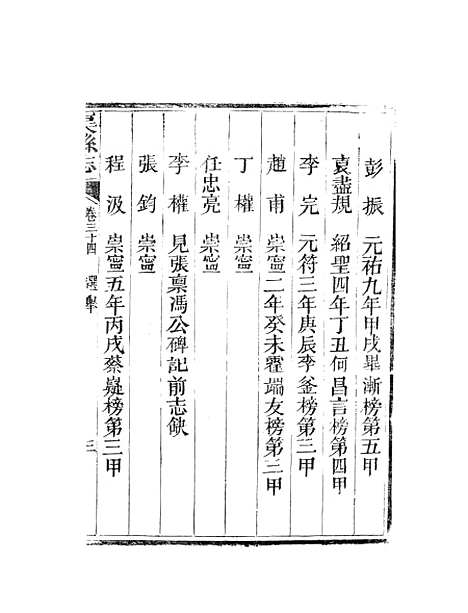 彭振 元祐九年甲戌畢漸榜第五甲
袁盡規 紹聖四年丁丑何昌言榜第四甲
李完 元符三年庚辰李釜榜第三甲
趙甫 崇寧二年癸未霍端友榜第三甲
丁權 崇寧
任忠亮 崇寧
李權 見張稟馮公碑記前志缺
張鈞 崇寧
程汲 崇寧五年丙戌蔡嶷榜第三甲
縣志 卷三十四 選舉 三